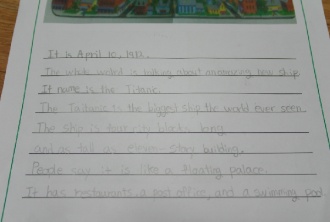 It is April 10, 1912.
The whole world is talking about an amazing new ship
It name is the Titanic.
The Titanic is the biggest ship the world ever seen.
The ship is four city blocks long
and as tall as eleven-story building.
People say it is like a floating palace.
It has restaurants, a post office, and a swimming pool.